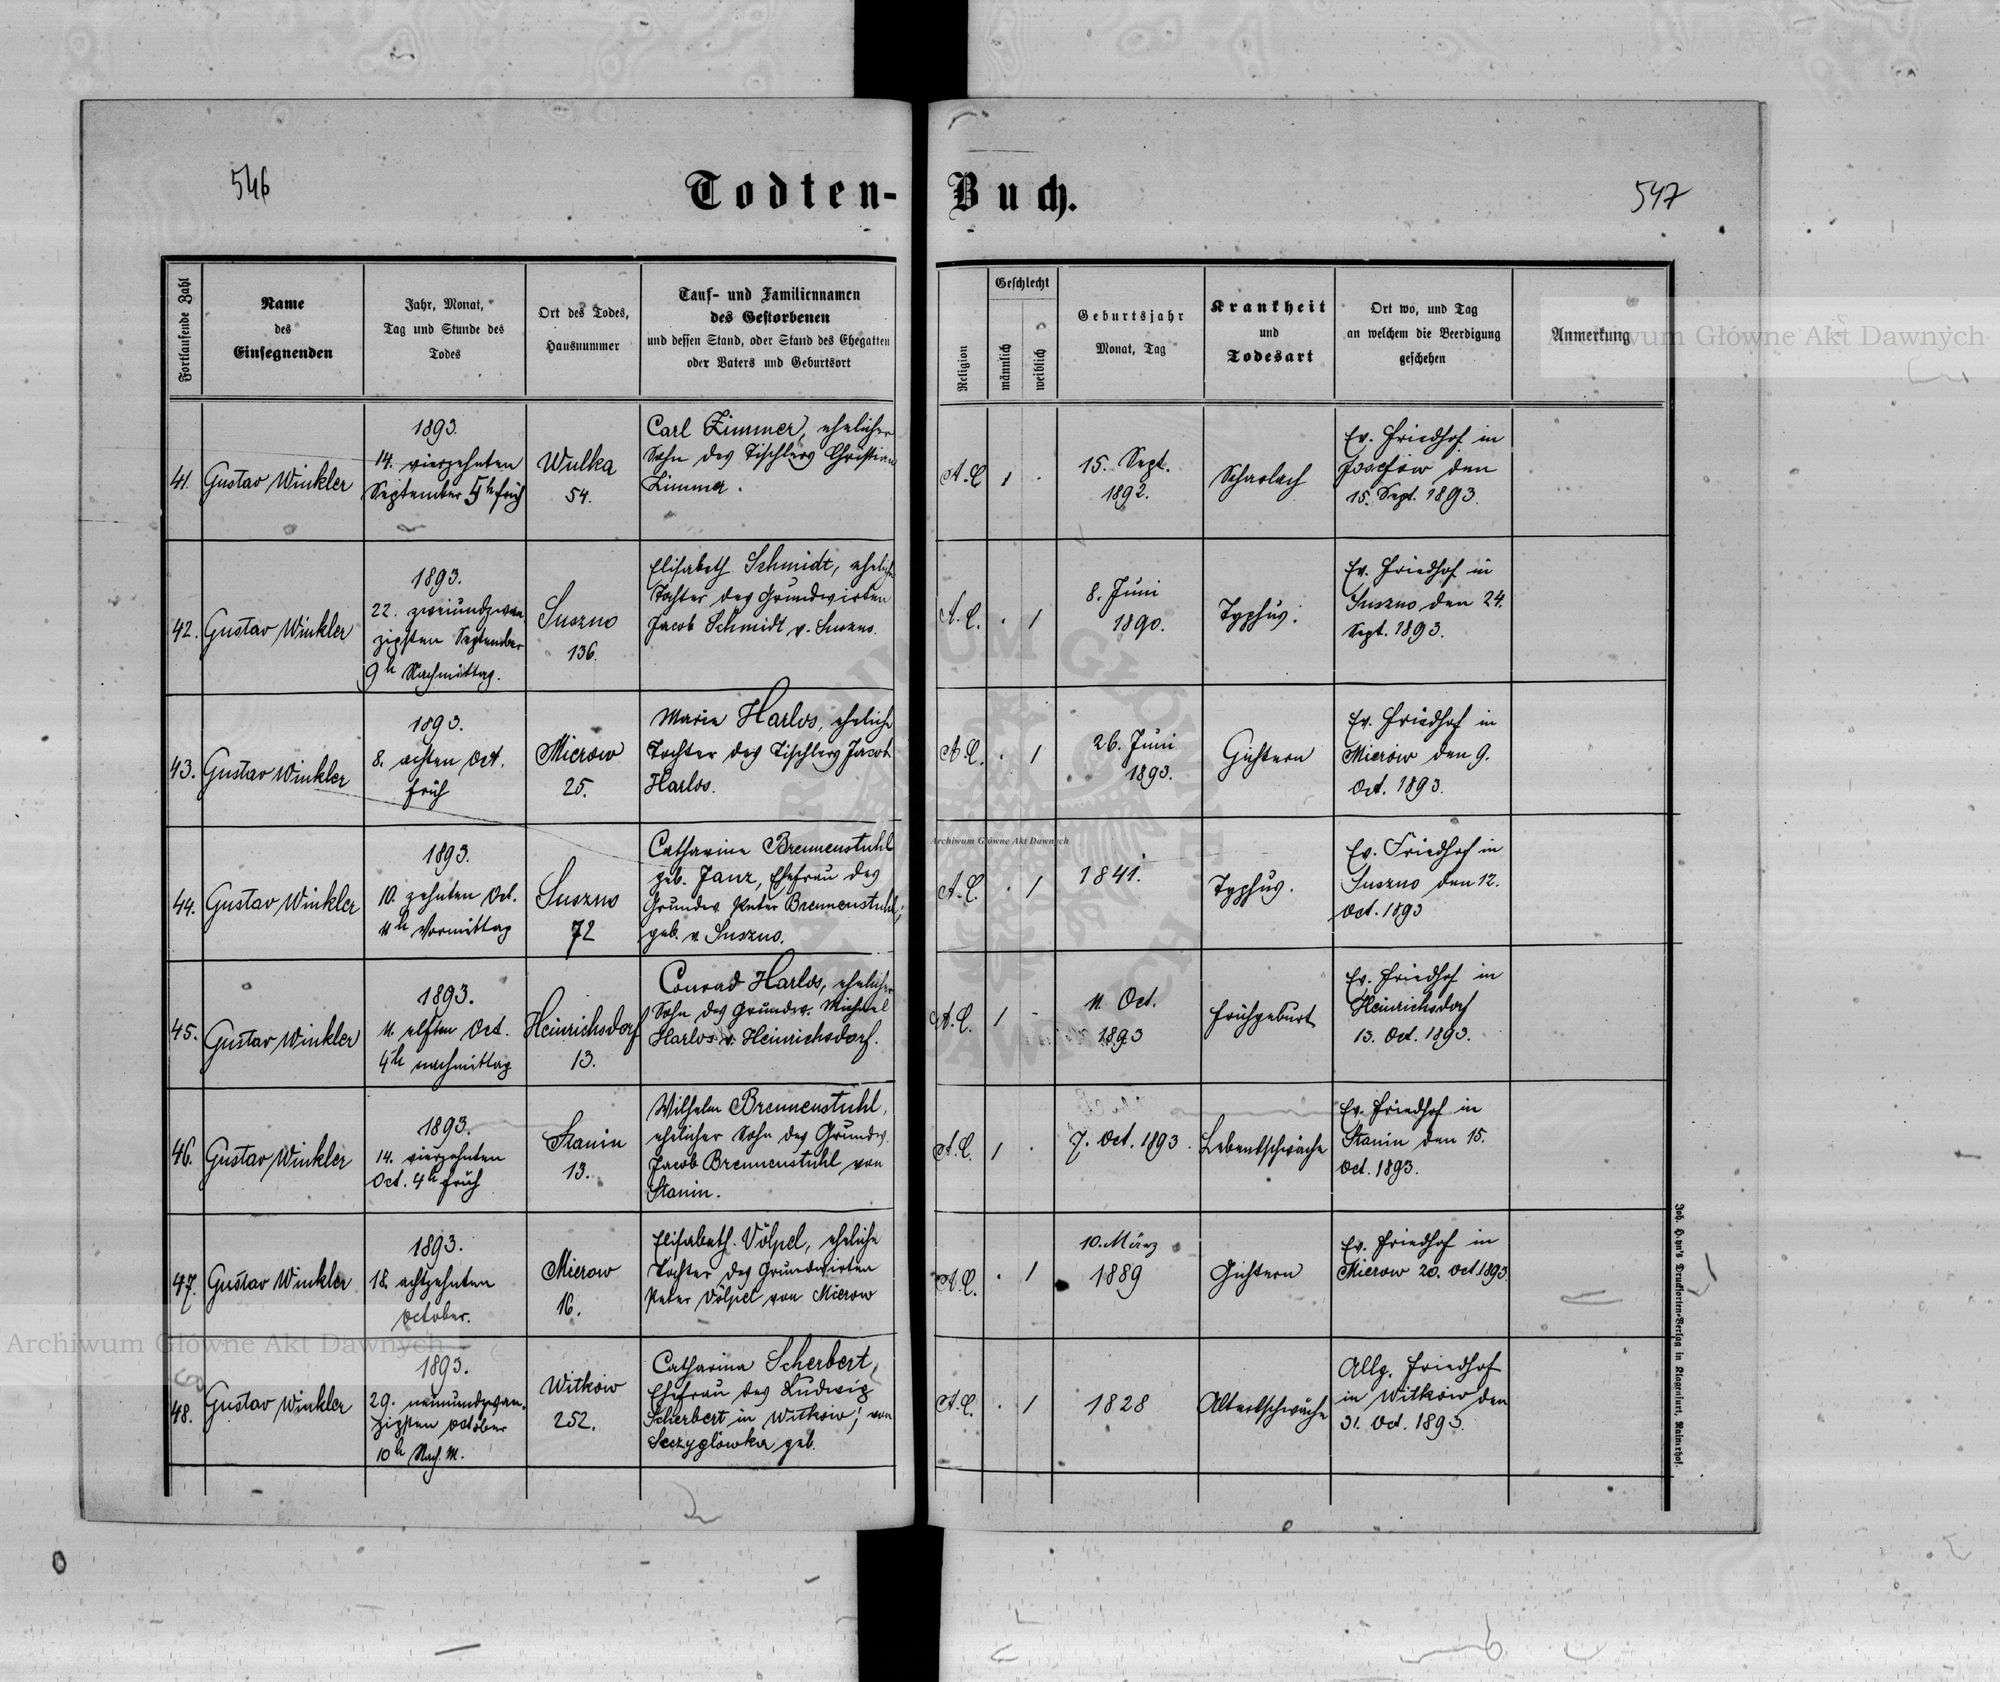 546
Todten-Buch.
547
Fortlaufende Zahl
Name
des
Einsegnenden
Jahr, Monat,
Tag und Stunde des
Todes
Ort des Todes,
Hausnummer
Tauf- und Familiennamen
des Gestorbenen
und dessen Stand, oder Stand des Ehegatten
oder Vaters und Geburtsort
Religion
Geschlecht
männlich
weiblich
Geburtsjahr
Monat, Tag
Krankheit
und
Todesart
Ort wo, und Tag
an welchem die Beerdigung
geschehen
Anmerkung
41.
Gustav Winkler
1893.
14. vierzehnten
September 5h früh
Wulka
54.
Carl Zimmer, ehelicher
Sohn des Tischlers Christian
Zimmer.
A.C.
1
.
15. Sept.
1892.
Scharlach
Ev. Friedhof in
Josefow den
15. Sept. 1893.
42.
Gustav Winkler
1893.
22. zweiundzwan
zigsten September
9h Nachmittag.
Suszno
136.
Elisabeth Schmidt, eheliche
Tochter des Grundwirten
Jacob Schmidt v. Suszno.
A.C.
.
1
8. Juni
1890.
Typhus.
Ev. Friedhof in
Suszno den 24.
Sept. 1893.
43.
Gustav Winkler
1893.
8. achten Oct.
früh
Mierow
25.
Marie Harlos, eheliche
Tochter des Tischlers Jacob
Harlos.
A.C.
.
1
26. Juni
1893.
Gichtern
Ev. Friedhof in
Mierow den 9.
Oct. 1893.
44.
Gustav Winkler
1893.
10. zehnten Oct.
11h Vormittag
Suszno
72
Catharine Brennenstuhl
geb. Janz, Ehefrau des
Grundw. Peter Brennenstuhl;
geb. v. Suszno.
A.C.
.
1
1841.
Typhus.
Ev. Friedhof in
Suszno den 12.
Oct. 1893
45.
Gustav Winkler
1893.
11. elften Oct.
4h nachmittag
Heinrichsdorf
13.
Conrad Harlos, ehelicher
Sohn des Grundw. Michael
Harlos v. Heinrichsdorf.
A.C.
1
.
11. Oct.
1893
Frühgeburt
Ev. Friedhof in
Heinrichsdorf
13. Oct. 1893.
46.
Gustav Winkler
1893.
14. vierzehnten
Oct. 4h früh
Stanin
13.
Wilhelm Brennenstuhl,
ehelicher Sohn des Grundw.
Jacob Brennenstuhl von
Stanin.
A.C.
1
.
7. Oct. 1893.
Lebensschwäche
Ev. Friedhof in
Stanin den 15.
Oct. 1893.
47.
Gustav Winkler
1893.
18. achtzehnten
October.
Mierow
16.
Elisabeth Völpel, eheliche
Tochter des Grundwirten
Peter Völpel von Mierow
A.C.
.
1
10. März
1889
Gichtern
Ev. Friedhof in
Mierow 20. Oct. 1893
48.
Gustav Winkler
1893.
29. neunundzwan
zigsten October
10h Nach. M.
Witków
252.
Catharina Scherbert,
Ehefrau des Ludwig
Scherbert in Witków; von
geb.
A.C.
.
1
1828
Altersschwäche
Allg. Friedhof
in Witków den
31. Oct. 1893.
Archiwum Główne Akt Dawnych
Archiwum Główne Akt Dawnych
Archiwum Główne Akt Dawnych
ARCHIWUM GŁÓWNE AKT DAWNYCH